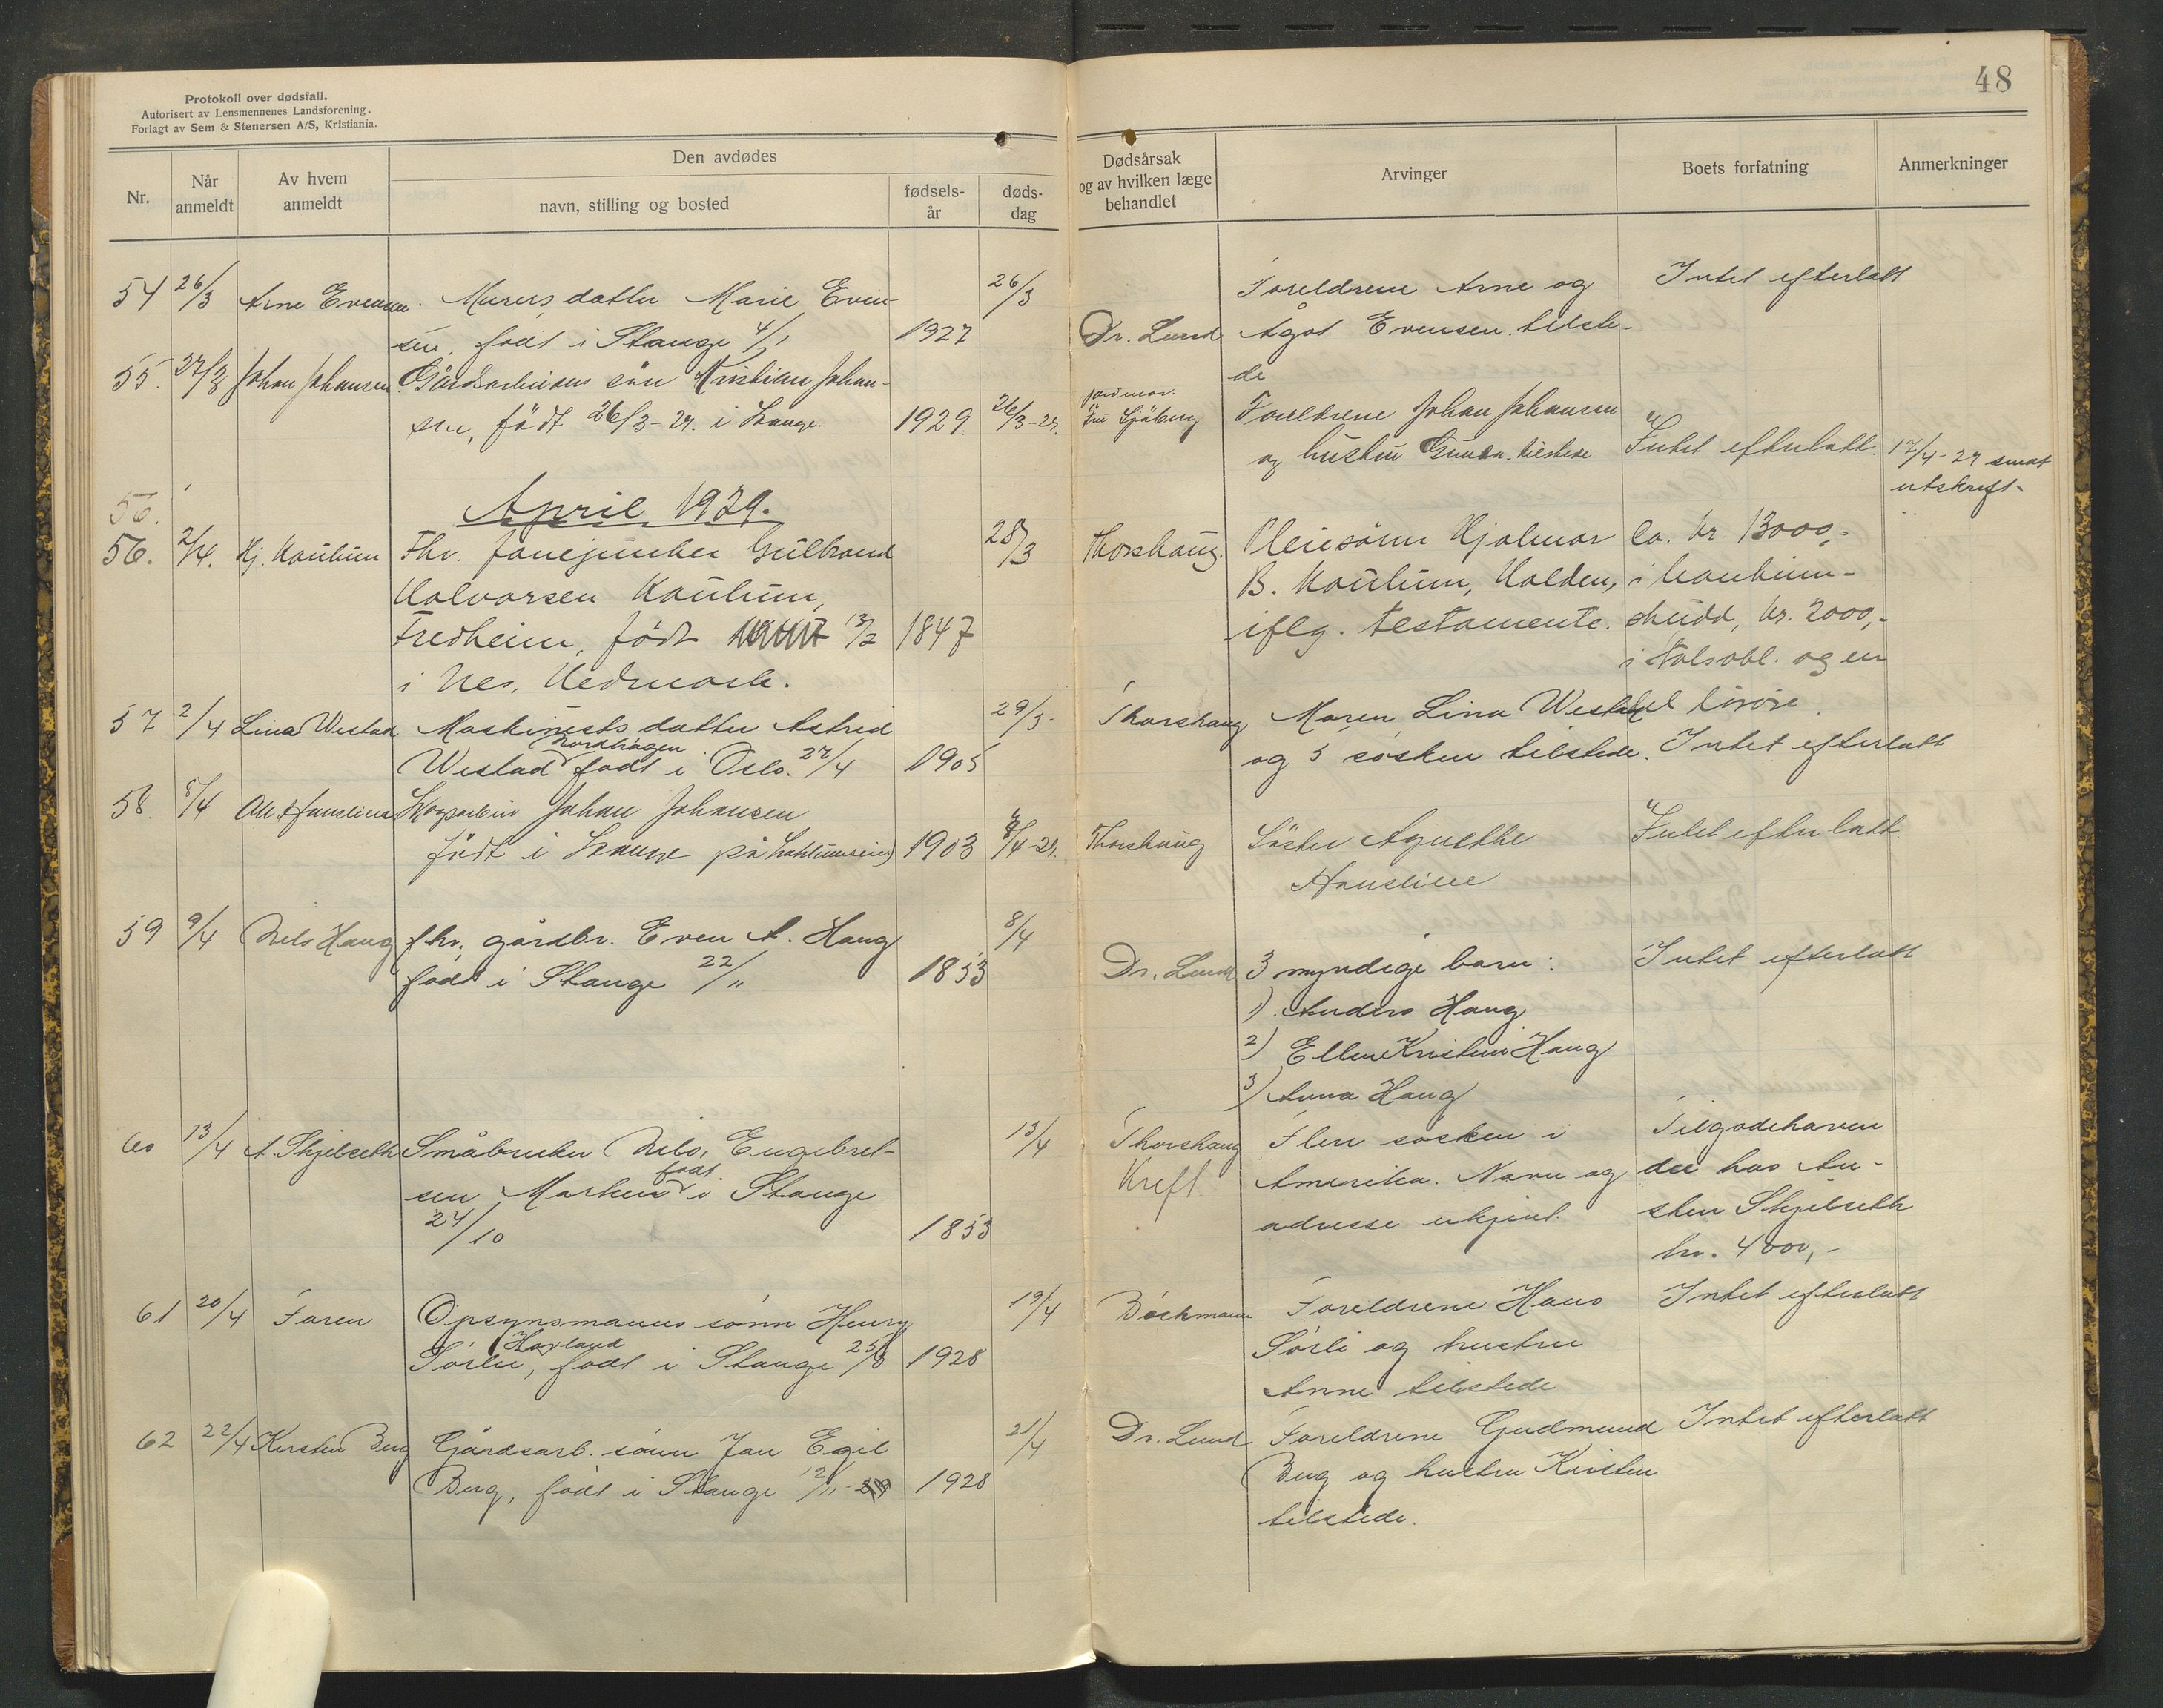 Protokoll over dødsfall.
Autorisert av Lensmennenes Landsforening.
Forlagt av Sem & Stenersen A/S, Kristiania.
Nr.
Når anmeldt
Av hvem anmeldt
Den avdødes
navn, stilling og bosted
fødsels-år
døds-dag
54 26/3 Arne Evensen Murers datter Marie Even- 26/3
sen, født i Stange 4/1 1927
55. 27/3 Johan Johansen Gårdsarbeiders søn Kristian Johan-
sen, født 26/3-29. i Stange. 1929. 26/3-29.
56.
April 1929.
56. 2/4. Hj. Kaulum Fhv. fanejunker Gulbrand 28/3
Halvorsen Kaulum,
Fredheim, født 13/2 1847
i Nes, Hedmark.
57 2/4 Lina Westad Maskinists datter Astrid 29/3
Nordhagen
Westad født i Oslo. 27/4 1905
58. 8/4 Skogsarbeid Johan Johansen
født i Stange på 1903 8/4-29.
59 9/4 Nels Haug fhv. gårdbr. Even A. Haug 8/4
født i Stange 22/11 1853
60 13/4 A. Skjelseth Småbruker Nils Engebret- 13/4
født
sen Marken i Stange
24/10 1853
61 20/4 Faren Opsynsmanns sønn Henry 19/4
Havland
Sørlie, født i Stange 25/8 1928
62 22/4 Kirsten Berg Gårdsarb. sønn Jan Egil 21/4
Berg, født i Stange 12/11-29 1928
48
Dødsårsak
og av hvilken læge
behandlet
Arvinger
Boets forfatning
Anmerkninger
Foreldrene Arne og Intet efterlatt
Dr. Lund Ågot Evensen. tilste-
de
jordmor.
Fru Sjøberg Foreldrene Johan Johansen
og hustru Gunda. tilstede Intet efterlatt. 17/4-29 sendt
utskrift.
Thorshaug. Pleiesønn Hjalmar Ca. kr 13000,-
B. Kaulum, Halden, i Kaulum-
iflg. testamente. skudd, kr. 2000,-
i Statsobl. og en
Thorshaug Moren Lina Westad del løsøre.
og 5 søsken tilstede. Intet efterlatt
Thorshaug Søster Agnethe Intet efterlatt.
Hanslien
Dr. Lund 3 myndige barn: Intet efterlatt
1) Anders Haug
2) Ellen Kristine Haug
3) Anna Haug
Thorshaug Flere søsken i Tilgodehaven
Kreft. Amerika. Navn og de hos An-
adresse ukjent. sten Skjelseth
kr. 4000,-
Bøckmann Foreldrene Hans Intet efterlatt
Sørli og hustru
Anne tilstede
Dr. Lund Foreldrene Gudmund Intet efterlatt
Berg og hustru Kirsten
tilstede.